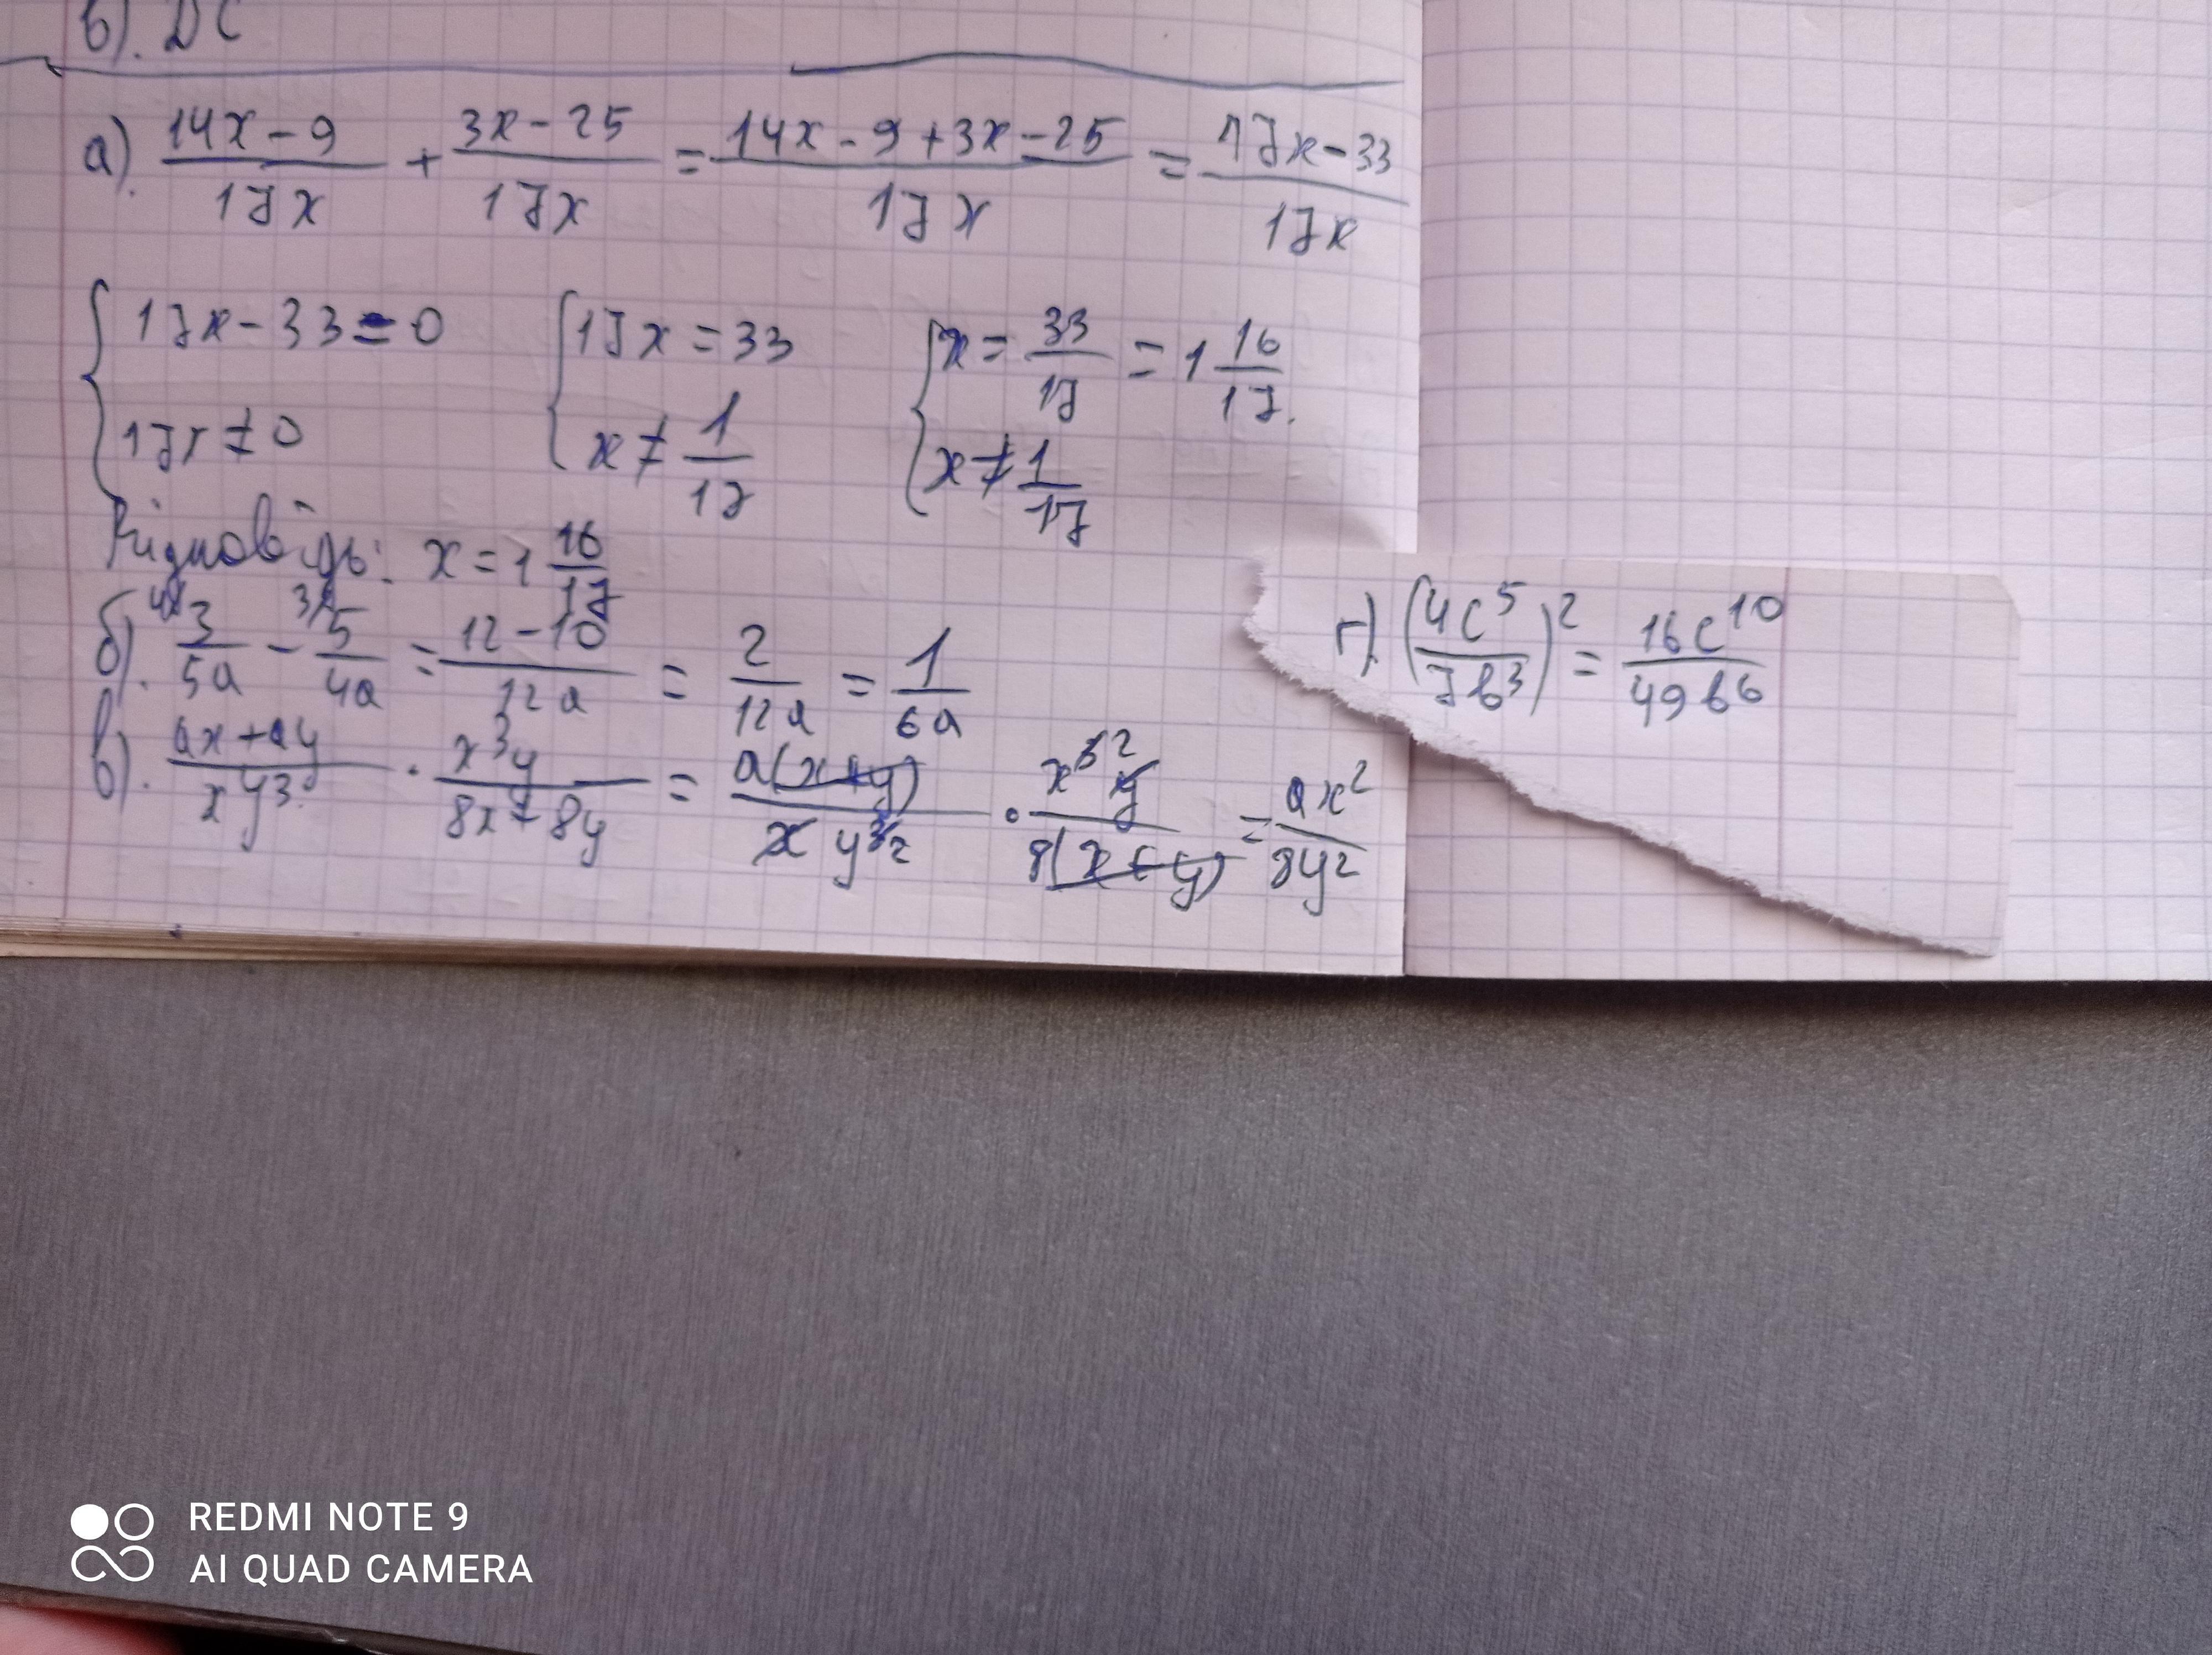 в). DC
а). \frac{14x-9}{17x} + \frac{3x-25}{17x} = \frac{14x-9+3x-25}{17x} = \frac{17x-33}{17x}
{17x-33=0 {17x=33 {x=\frac{33}{17}=1\frac{16}{17}.
17x≠0 x≠\frac{1}{17} x≠\frac{1}{17}
Відповідь: x=1\frac{16}{17}
б). \frac{3}{5a} - \frac{5}{4a} = \frac{12-10}{12a} = \frac{2}{12a} = \frac{1}{6a}
в). \frac{ax+ay}{xy^3} · \frac{x^3y}{8x+8y} = \frac{a(x+y)}{xy^{32}} · \frac{x^{32}y}{8(x+y)} = \frac{ax^2}{8y^2}
г). (\frac{4c^5}{7b^3})^2 = \frac{16c^{10}}{49b^6}
REDMI NOTE 9
AI QUAD CAMERA